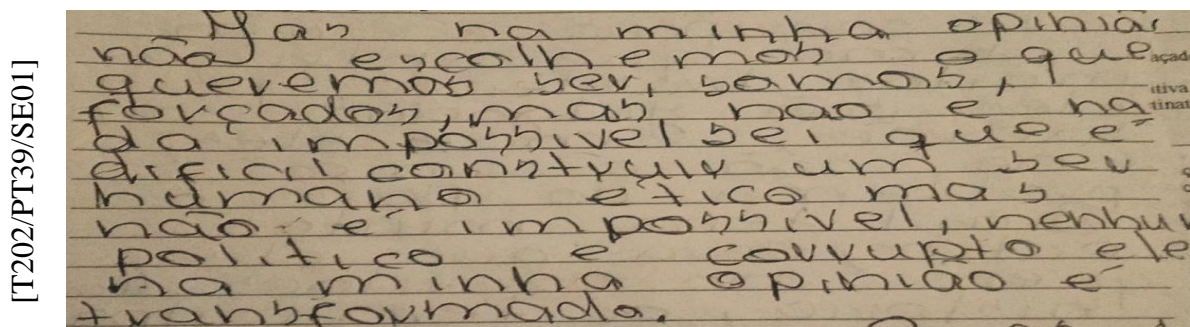 [T202/PT39/SE01]
Mas na minha opinião
não escolhemos o que
queremos ser, somos,
forçados, mas nao e na
da impossivel sei que é
dificil construir um ser
humano ético mas
não é impossivel, nenhum
politico é corrupto ele
na minha opinião é
transformado.